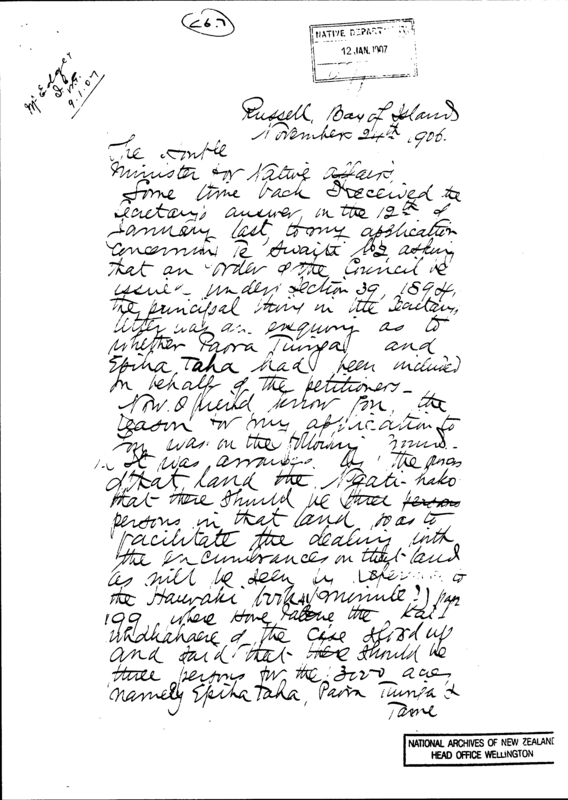 267
NATIVE DEPARTMENT
12 JAN. 1907
Mr Edger
9.1.07
Russell, Bay of Islands
November 24th 1906.
The
Minister for Native affairs
Some time back I received the
Secretary's answer, on the 12th of
January last, to my application
concerning Te Awaiti asking
that an order of the Council be
issued under Section 39, 1894,
the principal thing in the Secretary's
letter was an enquiry as to
whether Paora Tiunga and
Epiha Taha had been included
on behalf of the petitioners -
Now O friend know you, the
reason for my application to
you was on the following
It was arranged by the
of that land the Ngati-hako
that there should be three persons
persons in that land, so as to
facilitate the dealing with
the encumbrances on that land
as will be seen by reference to
the Hauraki book (minute?) page
199 where the Kai
whakahaere of the case stood up
and said that there should be
three persons for the 3000 acres
namely Epiha Taha, Paora Tiunga &
Tame
NATIONAL ARCHIVES OF NEW ZEALAND
HEAD OFFICE WELLINGTON